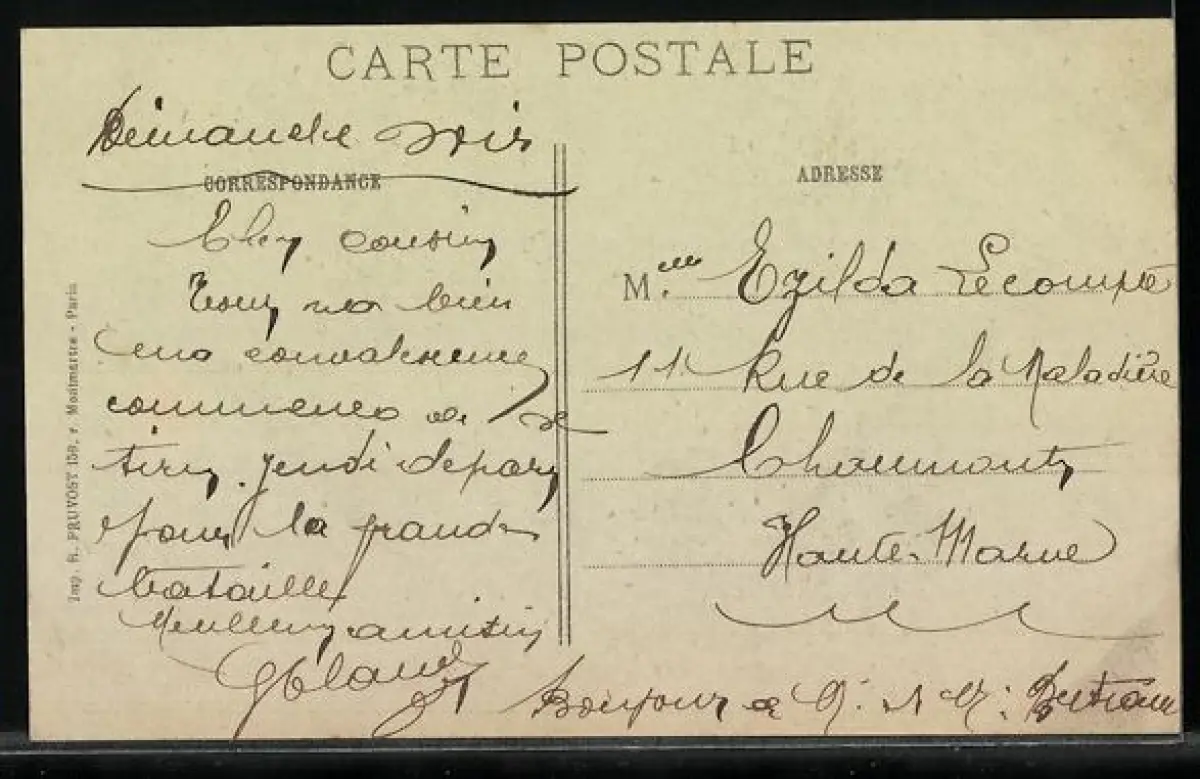 CARTE POSTALE
Dimanche soir
CORRESPONDANCE
Cher cousin
Tout va bien
ma convalescence
commence à se
tirer. Jeudi départ
pour la grande
bataille
Meilleures amitiés
Bonjour à M. et M. Bertrand
ADRESSE
M.elle Ezilda Lecompte
11 Rue de la Maladière
Chaumont
Haute-Marne
Imp. R. PRUVOST 159, r. Montmartre - Paris